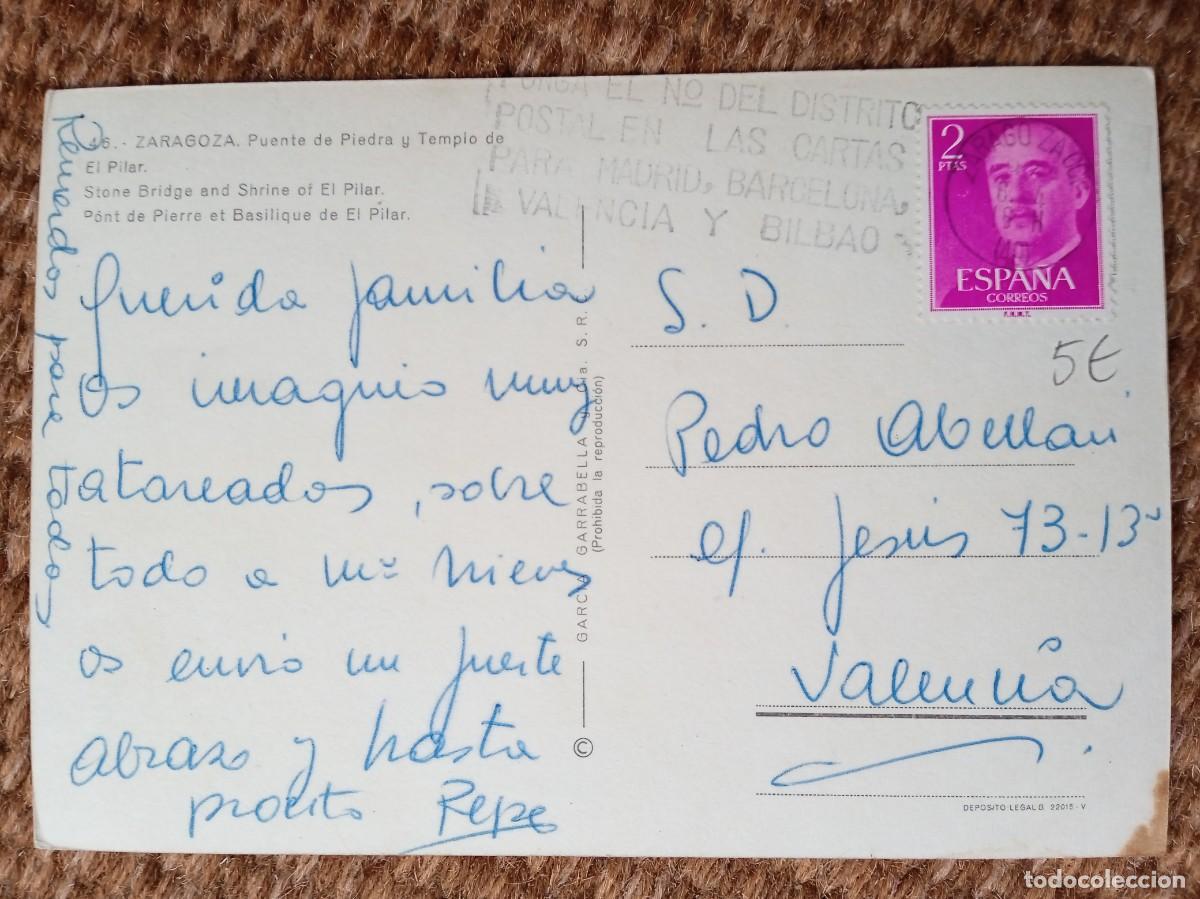 46. - ZARAGOZA. Puente de Piedra y Templo de
El Pilar.
Stone Bridge and Shrine of El Pilar.
Pónt de Pierre et Basilique de El Pilar.
PONGA EL Nº DEL DISTRITO
POSTAL EN LAS CARTAS
PARA MADRID, BARCELONA,
VALENCIA Y BILBAO
2
PTAS
ESPAÑA
CORREOS
F.N.M.T.
5€
Recuerdos para todos
Querida familia
os imagino muy
atareados, sobre
todo a Mª Nieves
os envio un fuerte
abrazo y hasta
pronto Pepe
© GARCIA GARRABELLA y Cía. S. R.
(Prohibida la reproducción)
S. D.
Pedro Abellan
c/. Jesús 73-13ª
Valencia
DEPOSITO LEGAL B. 22015 - V
todocoleccion